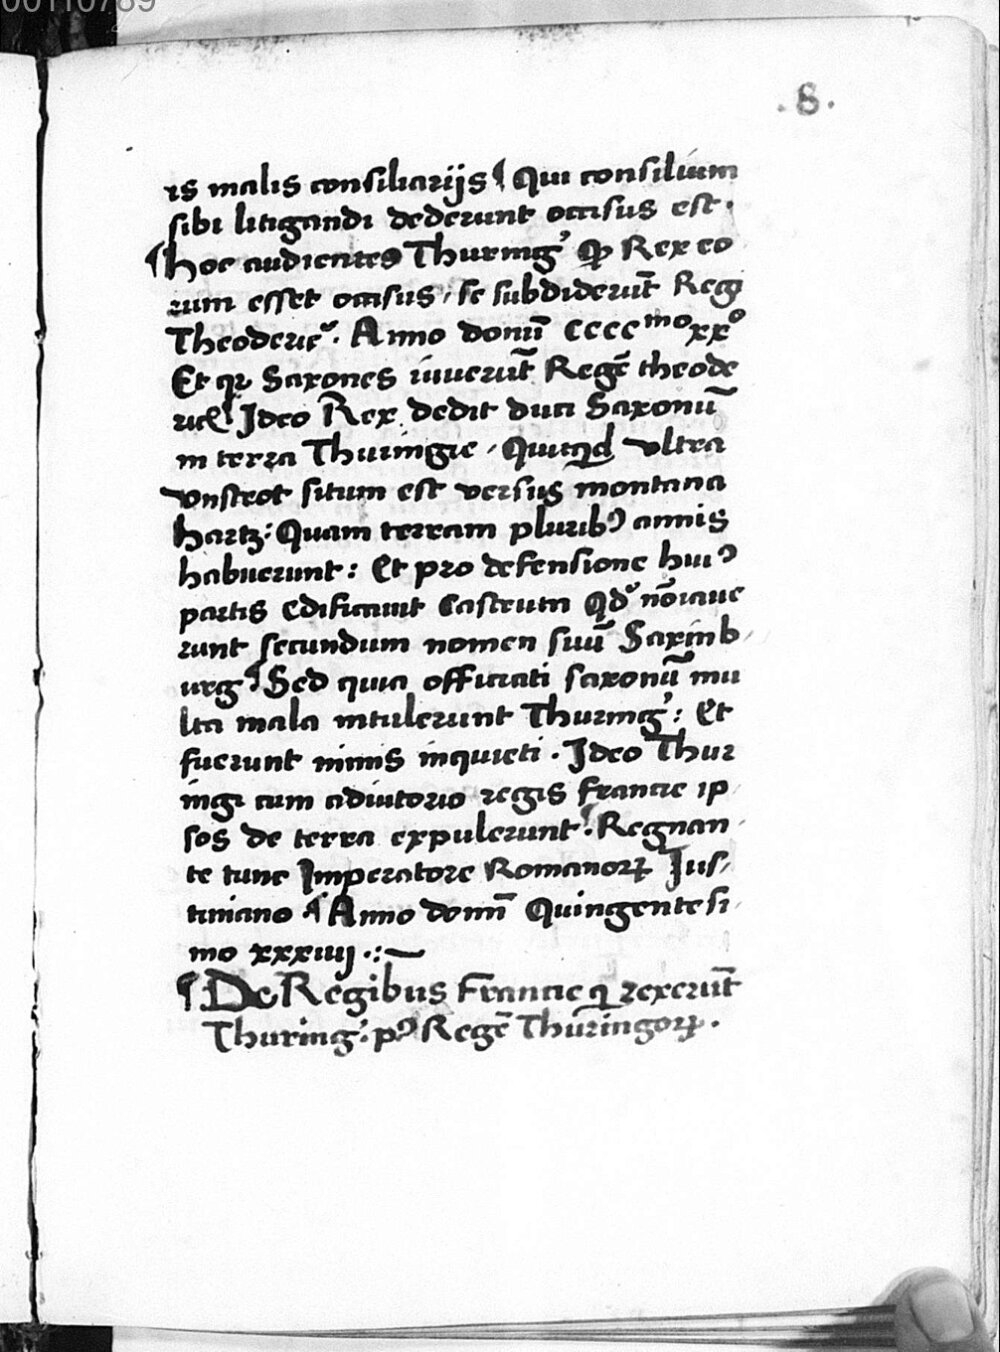 00110789
.8.
is malis consiliarijs ¶ Qui consilium
sibi litigandi dederunt occisus est.
¶ hoc audientes Thuringꝰ ꝙ Rex eo
rum esset occisus, se subdiderūt Regi
Theoderic̄. Anno domī cccc mo xxo
Et qꝛ Saxones iuuerūt Regē theode
ricū ¶ Ideo Rex dedit duci Saxonū
in terra Thuringie, Quicqͥd vltra
vnstrot situm est versus montana
hartz: Quam terram pluribꝰ annis
habuerunt: Et pro defensione huiꝰ
partis Edificauit Castrum Qd̓ nōiaue
runt secundum nomen suū Saxinb
urg ¶ Sed quia officiati saxonū mu
lta mala intulerunt Thuringꝰ: Et
fuerunt nimis inquieti. Ideo Thur
ingi cum adiutorio regis Francie ip
sos de terra expulerunt ¶ Regnan
te tunc Imperatore Romanorꝝ Jus
tiniano ¶ Anno domī Quingentesi
mo xxxiiij .:~
¶ De Regibus Francie qͥ rexerūt
Thuringꝰ. pꝰ Regē Thuringorꝝ.